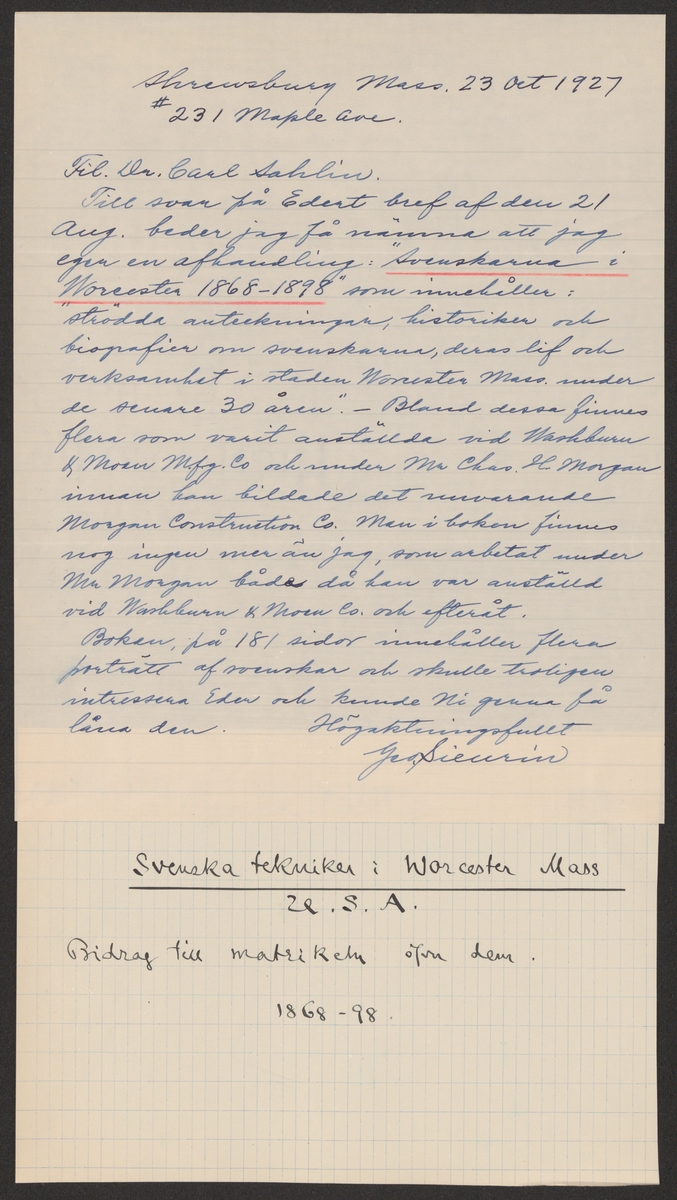 Shrewsbury Mass. 23 Oct 1927
# 231 Maple Ave.
Til. Dr. Carl Sahlin.
Till svar på Edert bref af den 21
Aug. beder jag få nämna att jag
eger en afhandling: "Svenskarna i
Worcester 1868-1898" som innehåller:
"strödda anteckningar, historiker och
biografier om svenskarna, deras lif och
verksamhet i staden Worcester Mass. under
de senare 30 åren". - Bland dessa finnes
flera som varit anställda vid Washburn
& Moen Mfg. Co och under Mr Chas. H Morgan
innan han bildade det nuvarande
Morgan Construction Co. Men i boken finnes
nog ingen mer än jag, som arbetat under
Mr Morgan både då han var anställd
vid Washburn & Moen Co. och efteråt.
Boken, på 181 sidor innehåller flera
porträtt af svenskar och skulle troligen
intressera Eder och kunde Ni gerna få
låna den. Högaktningsfullt
Geo. Sieurin
Svenska tekniker i Worcester Mass
U.S.A.
Bidrag till matrikeln öfver dem.
1868-98.